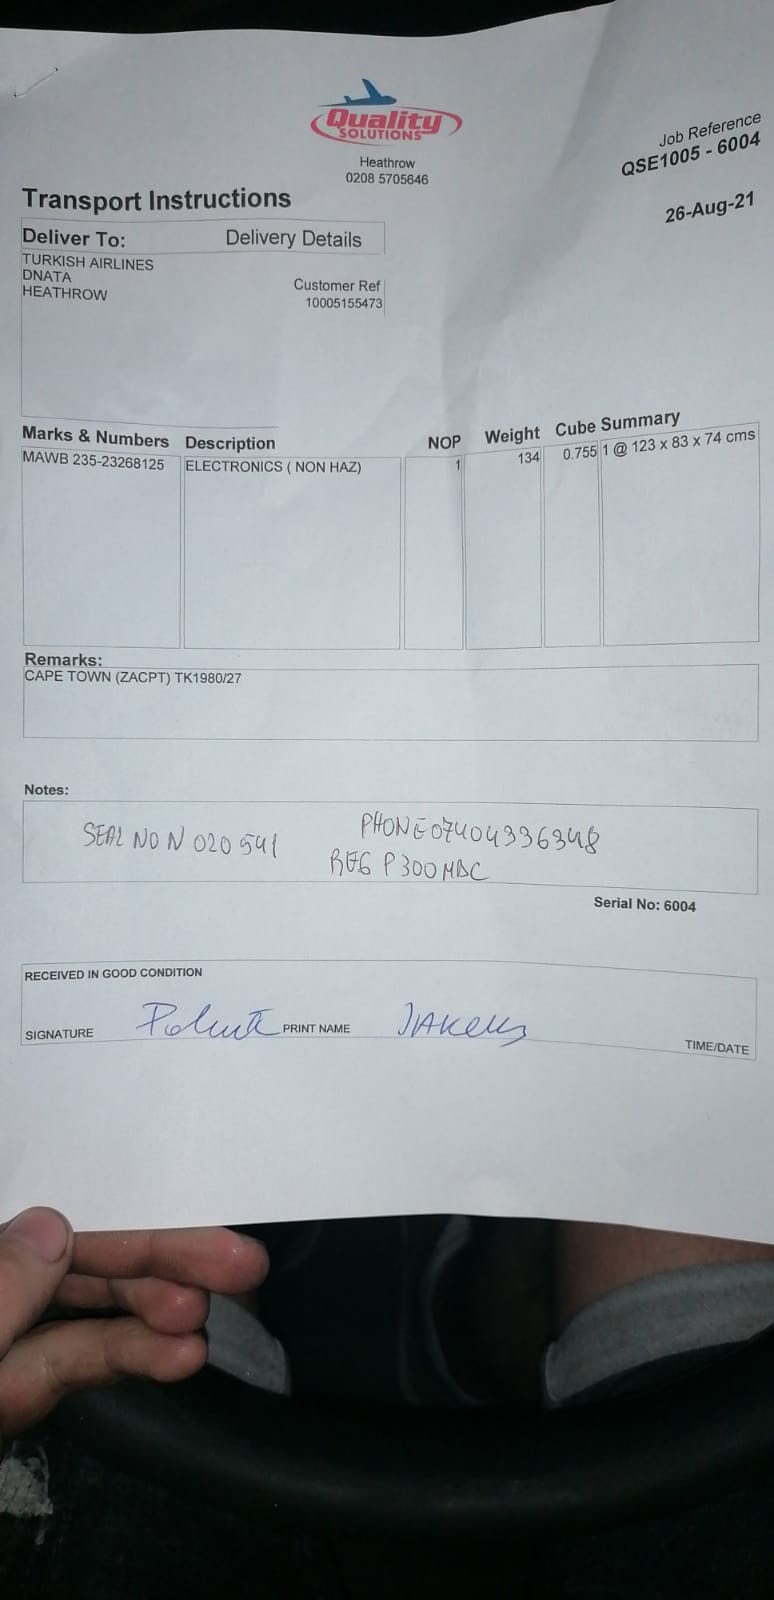 Quality
SOLUTIONS
Heathrow
0208 5705646
Job Reference
QSE1005 - 6004
26-Aug-21
Transport Instructions
Deliver To: Delivery Details
TURKISH AIRLINES
DNATA
HEATHROW
Customer Ref
10005155473
Marks & Numbers Description NOP Weight Cube Summary
MAWB 235-23268125 ELECTRONICS ( NON HAZ) 1 134 0.755 1 @ 123 x 83 x 74 cms
Remarks:
CAPE TOWN (ZACPT) TK1980/27
Notes:
SEAL NO N 020541 PHONE 07404336348
REG P300MDC
Serial No: 6004
RECEIVED IN GOOD CONDITION
SIGNATURE PRINT NAME
TIME/DATE